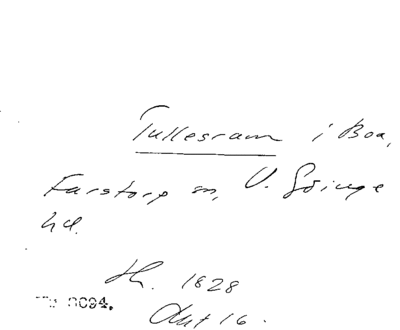 Tullesram i Boa,
Farstorp sn, V. Göinge
hd.
H. 1828
Akt 16.
8094.